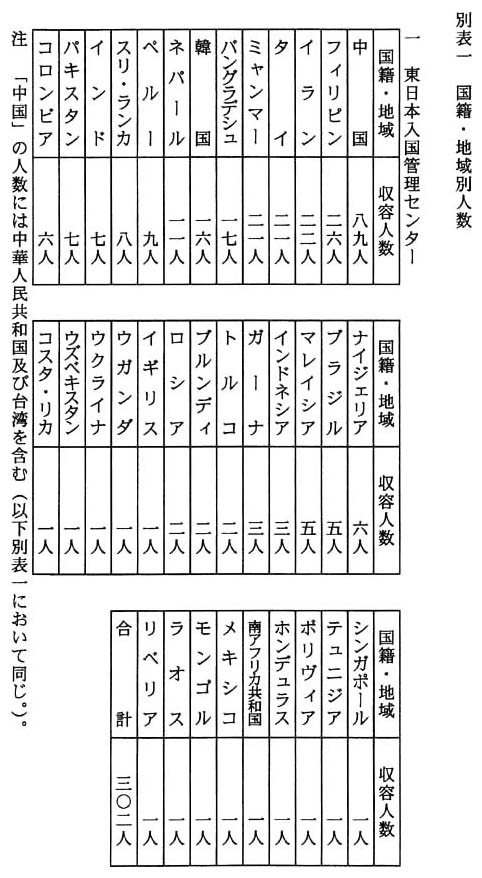 別表一 国籍・地域別人数
一 東日本入国管理センター
国籍・地域 収容人数
中国 八九人
フィリピン 二六人
イラン 二二人
タイ 二一人
ミャンマー 二一人
バングラデシュ 一七人
韓国 一六人
ネパール 一一人
ペルー 九人
スリ・ランカ 八人
インド 七人
パキスタン 七人
コロンビア 六人
国籍・地域 収容人数
ナイジェリア 六人
ブラジル 五人
マレイシア 五人
インドネシア 三人
ガーナ 三人
トルコ 二人
ブルンディ 二人
ロシア 二人
イギリス 一人
ウガンダ 一人
ウクライナ 一人
ウズベキスタン 一人
コスタ・リカ 一人
国籍・地域 収容人数
シンガポール 一人
テュニジア 一人
ボリヴィア 一人
ホンデュラス 一人
南アフリカ共和国 一人
メキシコ 一人
モンゴル 一人
ラオス 一人
リベリア 一人
合計 三〇二人
注 「中国」の人数には中華人民共和国及び台湾を含む（以下別表一において同じ。）。